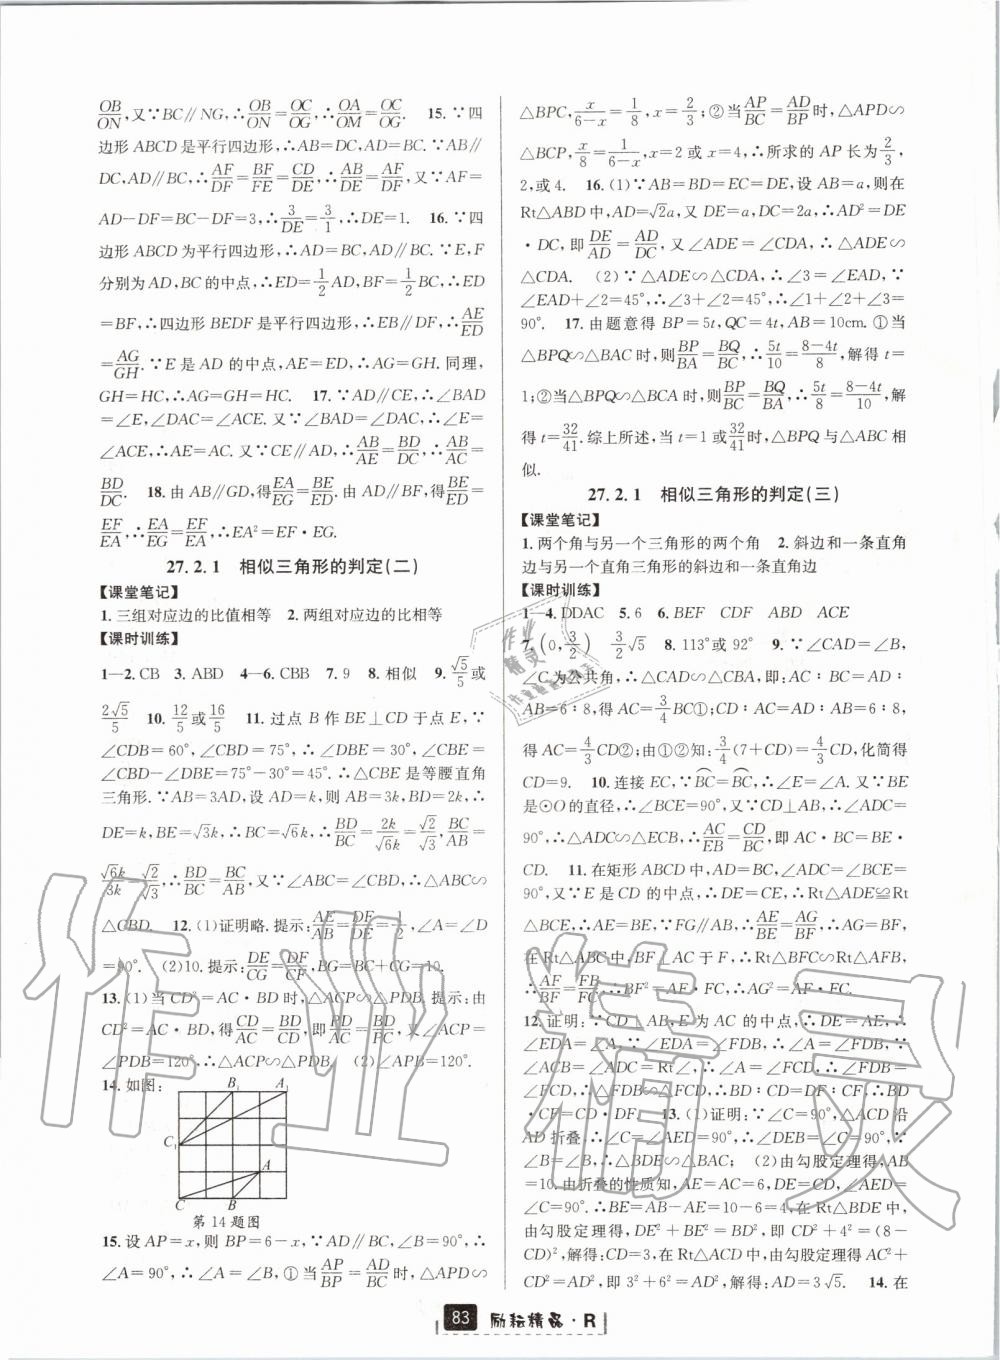 OB/ON,又∵BC∥NG,∴OB/ON=OC/OG,∴OA/OM=OC/OG. 15.∵四
边形ABCD是平行四边形,∴AB=DC,AD=BC.∵AB∥
DC,AD∥BC,∴AF/DF=BF/FE=CD/DE,∴AB/DE=AF/DF,又∵AF=
AD-DF=BC-DF=3,∴3/DE=3/1,∴DE=1. 16.∵四
边形ABCD为平行四边形,∴AD=BC,AD∥BC.∵E,F
分别为AD,BC的中点,∴ED=1/2AD,BF=1/2BC,∴ED
=BF,∴四边形BEDF是平行四边形,∴EB∥DF,∴AE/ED=
AG/GH.∵E是AD的中点,AE=ED,∴AG=GH.同理,
GH=HC,∴AG=GH=HC. 17.∵AD∥CE,∴∠BAD
=∠E,∠DAC=∠ACE.又∵∠BAD=∠DAC,∴∠E=
∠ACE,∴AE=AC.又∵CE∥AD,∴AB/AE=BD/DC,∴AB/AC=
BD/DC. 18.由AB∥GD,得EA/EG=BE/ED.由AD∥BF,得BE/ED=
EF/EA,∴EA/EG=EF/EA,∴EA²=EF·EG.
27.2.1 相似三角形的判定(二)
【课堂笔记】
1.三组对应边的比值相等 2.两组对应边的比相等
【课时训练】
1—2.CB 3.ABD 4—6.CBB 7.9 8.相似 9.√5/5或
2√5/5 10.12/5或16/5 11.过点B作BE⊥CD于点E,∵
∠CDB=60°,∠CBD=75°,∴∠DBE=30°,∠CBE=
∠CBD-∠DBE=75°-30°=45°.∴△CBE是等腰直角
三角形.∵AB=3AD,设AD=k,则AB=3k,BD=2k,∴
DE=k,BE=√3k,∴BC=√6k,∴BD/BC=2k/√6k=√2/√3,BC/AB=
√6k/3k=√2/√3,∴BD/BC=BC/AB,又∵∠ABC=∠CBD,∴△ABC∽
△CBD. 12.(1)证明略.提示:AE/DE=AF/DF=1/2,∠A=∠D
=90°. (2)10.提示:DE/CG=DF/CF,BG=BC+CG=10.
13.(1)当CD²=AC·BD时,△ACP∽△PDB.提示:由
CD²=AC·BD,得CD/AC=BD/CD,即PD/AC=BD/PC,又∠ACP=
∠PDB=120°,∴△ACP∽△PDB. (2)∠APB=120°.
14.如图:
B₁ A₁
C₁
A
C B
第14题图
15.设AP=x,则BP=6-x,∵AD∥BC,∠B=90°,∴
∠A=90°,∴∠A=∠B,①当AP/BP=AD/BC时,△APD∽
△BPC,x/(6-x)=1/8,x=2/3;②当AP/BC=AD/BP时,△APD∽
△BCP,x/8=1/(6-x),x=2或x=4,∴所求的AP长为2/3,
2,或4. 16.(1)∵AB=BD=EC=DE,设AB=a,则在
Rt△ABD中,AD=√2a,又DE=a,DC=2a,∴AD²=DE
·DC,即DE/AD=AD/DC,又∠ADE=∠CDA,∴△ADE∽
△CDA. (2)∵△ADE∽△CDA,∴∠3=∠EAD,∵
∠EAD+∠2=45°,∴∠3+∠2=45°,∴∠1+∠2+∠3=
90°. 17.由题意得BP=5t,QC=4t,AB=10cm.①当
△BPQ∽△BAC时,则BP/BA=BQ/BC,∴5t/10=(8-4t)/8,解得t=
1;②当△BPQ∽△BCA时,则BP/BC=BQ/BA,∴5t/8=(8-4t)/10,解
得t=32/41.综上所述,当t=1或32/41时,△BPQ与△ABC相
似.
27.2.1 相似三角形的判定(三)
【课堂笔记】
1.两个角与另一个三角形的两个角 2.斜边和一条直角
边与另一个直角三角形的斜边和一条直角边
【课时训练】
1—4.DDAC 5.6 6.BEF CDF ABD ACE
7.(0,3/2) 3/2√5 8.113°或92° 9.∵∠CAD=∠B,
∠C为公共角,∴△CAD∽△CBA,∴AC:BC=AD:
AB=6:8,得AC=3/4BC①;CD:AC=AD:AB=6:8,
得AC=4/3CD②;由①②知:3/4(7+CD)=4/3CD,化简得
CD=9. 10.连接EC,∵BC=BC,∴∠E=∠A.又∵BE
是⊙O的直径,∴∠BCE=90°,又∵CD⊥AB,∴∠ADC=
90°,∴△ADC∽△ECB,∴AC/EB=CD/BC,即AC·BC=BE·
CD. 11.在矩形ABCD中,AD=BC,∠ADE=∠BCE=
90°,又∵E是CD的中点,∴DE=CE,∴Rt△ADE≌Rt
△BCE,∴AE=BE,∵FG∥AB,∴AE/BE=AG/BF,∴AG=BF,
在Rt△ABC中,BF⊥AC于F,∴Rt△BFC∽Rt△AFB,
∴AF/BF=FB/FC,∴BF²=AF·FC,∴AG²=AF·FC.
12.证明:∵CD⊥AB,E为AC的中点,∴DE=AE,∴
∠EDA=∠A,∵∠EDA=∠FDB,∴∠A=∠FDB,∵
∠ACB=∠ADC=Rt∠,∴∠A=∠FCD,∴∠FDB=
∠FCD,∴△FDB∽△FCD,∴BD:CD=DF:CF,∴BD
·CF=CD·DF. 13.(1)证明:∵∠C=90°,△ACD沿
AD折叠,∴∠C=∠AED=90°,∴∠DEB=∠C=90°,∵
∠B=∠B,∴△BDE∽△BAC; (2)由勾股定理得,AB
=10.由折叠的性质知,AE=AC=6,DE=CD,∠AED=
∠C=90°.∴BE=AB-AE=10-6=4,在Rt△BDE中,
由勾股定理得,DE²+BE²=BD²,即CD²+4²=(8-
CD)²,解得:CD=3,在Rt△ACD中,由勾股定理得AC²+
CD²=AD²,即3²+6²=AD²,解得:AD=3√5. 14.在
83 励耘精品·R
作业精灵